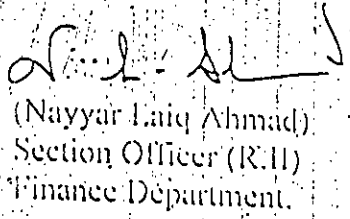 (Nayyar Laiq Ahmad)
Section Officer (R.II)
Finance Department.